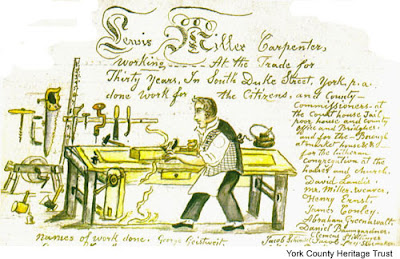 Lewis Miller Carpenter,
working At the Trade for
Thirty Years. In South Duke Street, York. p.a.
done work for the Citizens. and County
Commissioners. at
the Court house Jail
poor house and County
office and Bridges.
and for the Borough
at market houses &
for the Citizens
congregation at the
houses and church.
David Landis
Mr. Miller, weaver,
Henry Ernst.
James Cooley.
Abraham Greenawalt
Daniel Baumgardner.
Names of work done. George
Jacob
York County Heritage Trust